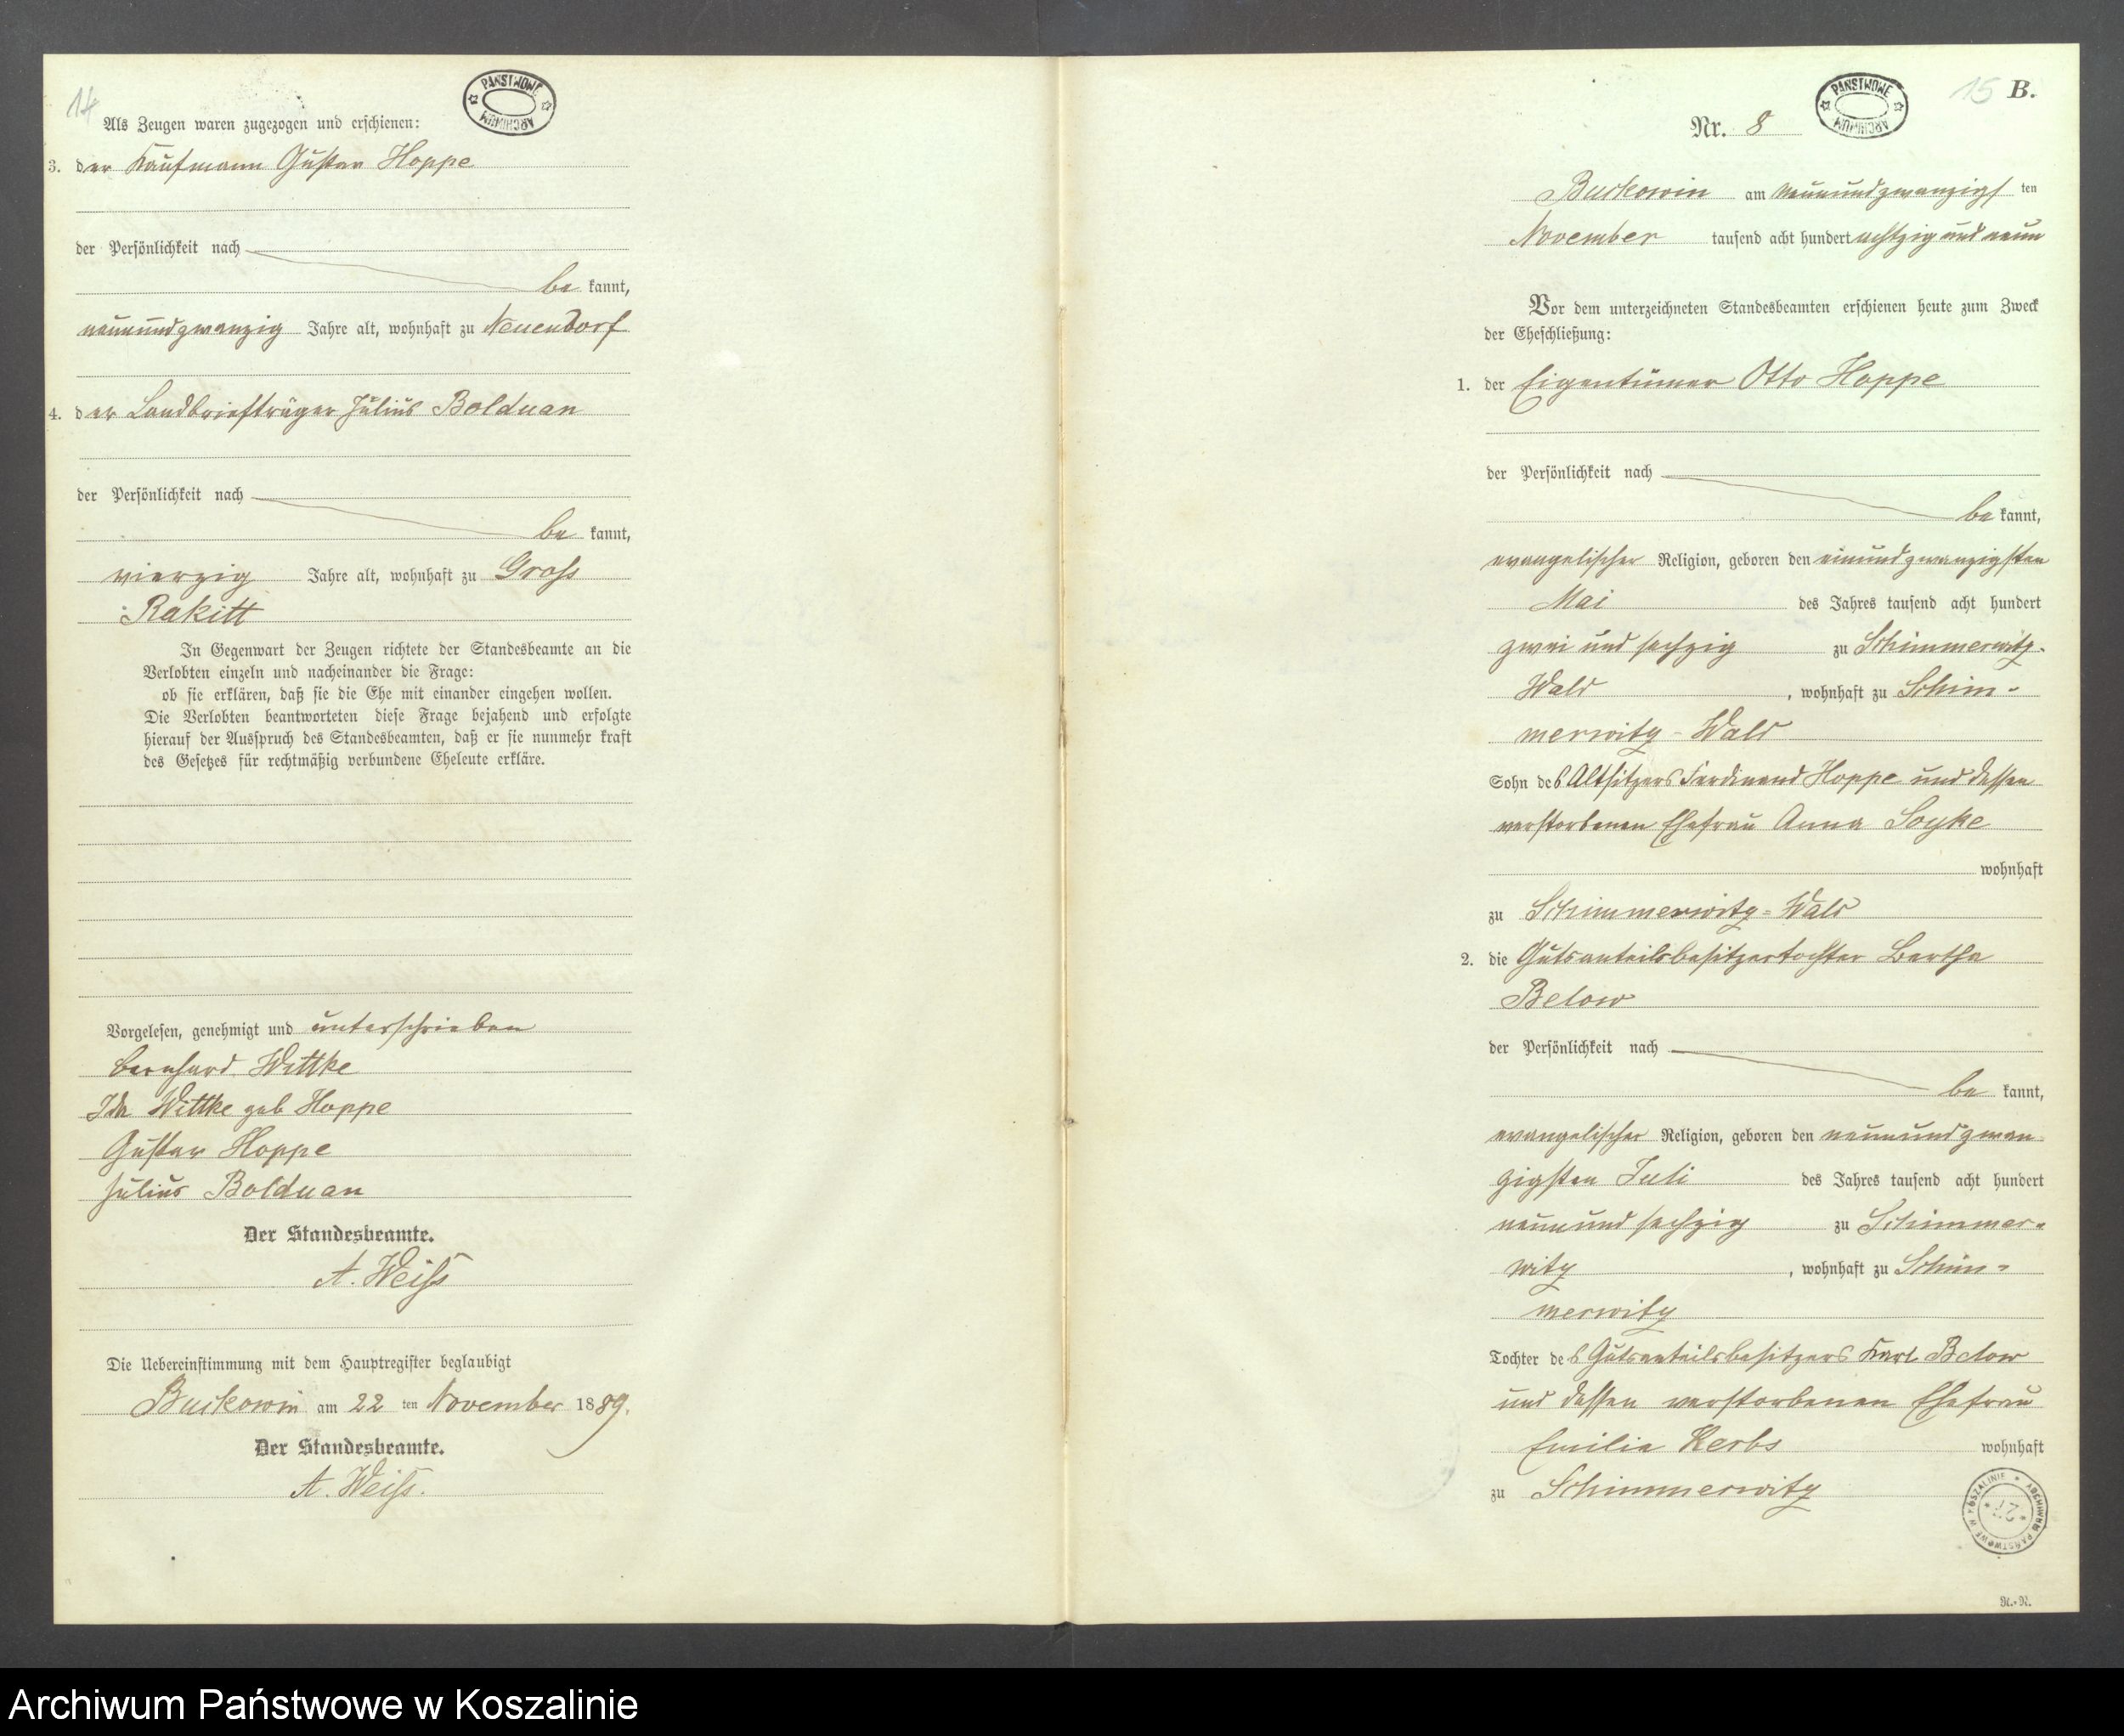 14
PAŃSTWOWE ARCHIWUM
Als Zeugen waren zugezogen und erschienen:
3. der Kaufmann Gustav Hoppe
der Persönlichkeit nach
be kannt,
neunundzwanzig Jahre alt, wohnhaft zu Neuendorf
4. der Landbriefträger Julius Bolduan
der Persönlichkeit nach
be kannt,
vierzig Jahre alt, wohnhaft zu Gross
Rakitt
In Gegenwart der Zeugen richtete der Standesbeamte an die
Verlobten einzeln und nacheinander die Frage:
ob sie erklären, daß sie die Ehe mit einander eingehen wollen.
Die Verlobten beantworteten diese Frage bejahend und erfolgte
hierauf der Ausspruch des Standesbeamten, daß er sie nunmehr kraft
des Gesetzes für rechtmäßig verbundene Eheleute erkläre.
Vorgelesen, genehmigt und unterschrieben
Bernhard Wittke
Ida Wittke geb Hoppe
Gustav Hoppe
Julius Bolduan
Der Standesbeamte.
A. Weiß
Die Uebereinstimmung mit dem Hauptregister beglaubigt
Buckowin am 22 ten November 1889.
Der Standesbeamte.
A. Weiß.
15 B.
PAŃSTWOWE ARCHIWUM
Nr. 8
Buckowin am neunundzwanzigs ten
November tausend acht hundert achtzig und neun
Vor dem unterzeichneten Standesbeamten erschienen heute zum Zweck
der Eheschließung:
1. der Eigentümer Otto Hoppe
der Persönlichkeit nach
be kannt,
evangelischer Religion, geboren den einundzwanzigsten
Mai des Jahres tausend acht hundert
zwei und sechzig zu Schimmerwitz-
Wald, wohnhaft zu Schim-
merwitz-Wald
Sohn des Altsitzers Ferdinand Hoppe und dessen
verstorbenen Ehefrau Anna Soyke
wohnhaft
zu Schimmerwitz-Wald
2. die Gutsanteilsbesitzertochter Bertha
Below
der Persönlichkeit nach
be kannt,
evangelischer Religion, geboren den neunundzwan-
zigsten Juli des Jahres tausend acht hundert
neunund sechzig zu Schimmer-
witz, wohnhaft zu Schim-
merwitz
Tochter des Gutsanteilsbesitzers Karl Below
und dessen verstorbenen Ehefrau
Emilie Kerbs wohnhaft
zu Schimmerwitz
ARCHIWUM PAŃSTWOWE W KOSZALINIE
27
R.-R.
Archiwum Państwowe w Koszalinie